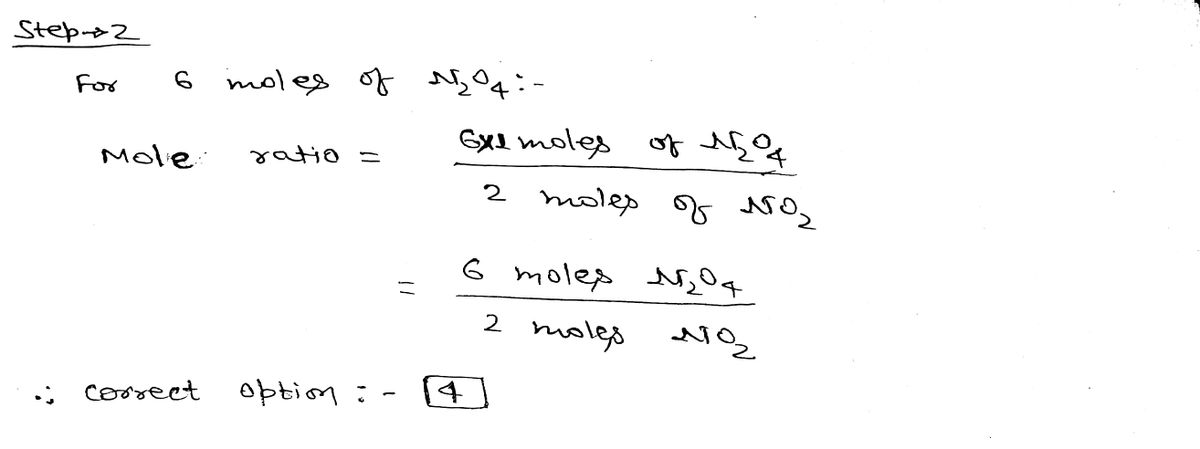 Step→2
For 6 moles of N₂O₄:-
Mole ratio = 6x1 moles of N₂O₄
2 moles of NO₂
= 6 moles N₂O₄
2 moles NO₂
∴ correct option :- 4